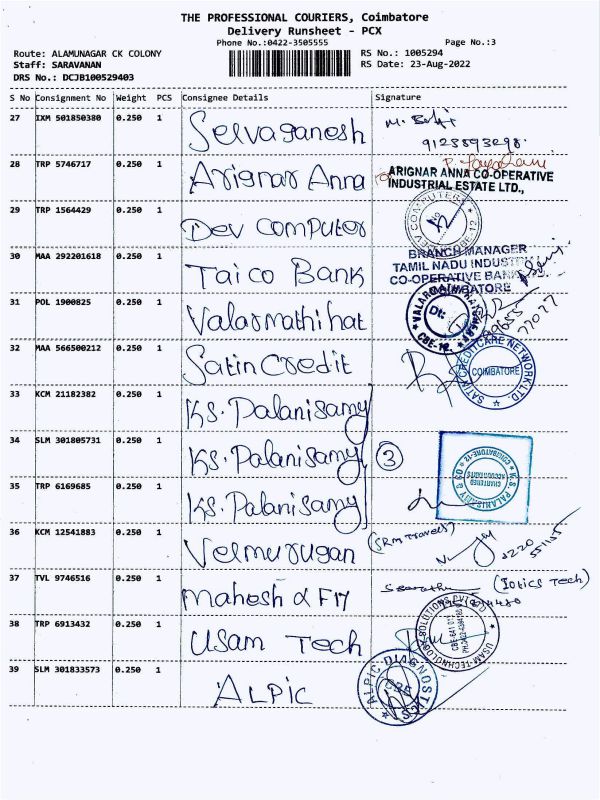 THE PROFESSIONAL COURIERS, Coimbatore
Delivery Runsheet - PCX
Phone No.:0422-3505555
Page No.:3
Route: ALAMUNAGAR CK COLONY
Staff: SARAVANAN
DRS No.: DCJB100529403
RS No.: 1005294
RS Date: 23-Aug-2022
S No Consignment No Weight PCS Consignee Details Signature
27 IXM 501850380 0.250 1 Selvaganesh
9123593298.
28 TRP 5746717 0.250 1 Arignar Anna
ARIGNAR ANNA CO-OPERATIVE
INDUSTRIAL ESTATE LTD.,
29 TRP 1564429 0.250 1 Dev Computer
DEV COMPUTERS
CBE-12
30 MAA 292201618 0.250 1 Taico Bank
BRANCH MANAGER
TAMIL NADU INDUSTRI
CO-OPERATIVE BANK
COIMBATORE
31 POL 1900825 0.250 1 Valarmathi hat
Dt:
CBE-12.
32 MAA 566500212 0.250 1 Satin Credit
SATIN CREDITCARE NETWORK LTD.
COIMBATORE
33 KCM 21182382 0.250 1 Ks. Palanisamy
34 SLM 301805731 0.250 1 Ks. Palanisamy 3
K.S. PALANISAMY
CHARTERED
ACCOUNTANTS
COIMBATORE-12
35 TRP 6169685 0.250 1 Ks. Palanisamy
36 KCM 12541883 0.250 1 Velmurugan
(SRM Travels)
37 TVL 9746516 0.250 1 Mahesh & F17
(Iotics Tech)
38 TRP 6913432 0.250 1 USam Tech
USAM TECHNOLOGY SOLUTIONS PVT LTD
39 SLM 301833573 0.250 1 ALPIC
ALPIC DIAGNOSTICS
CBE